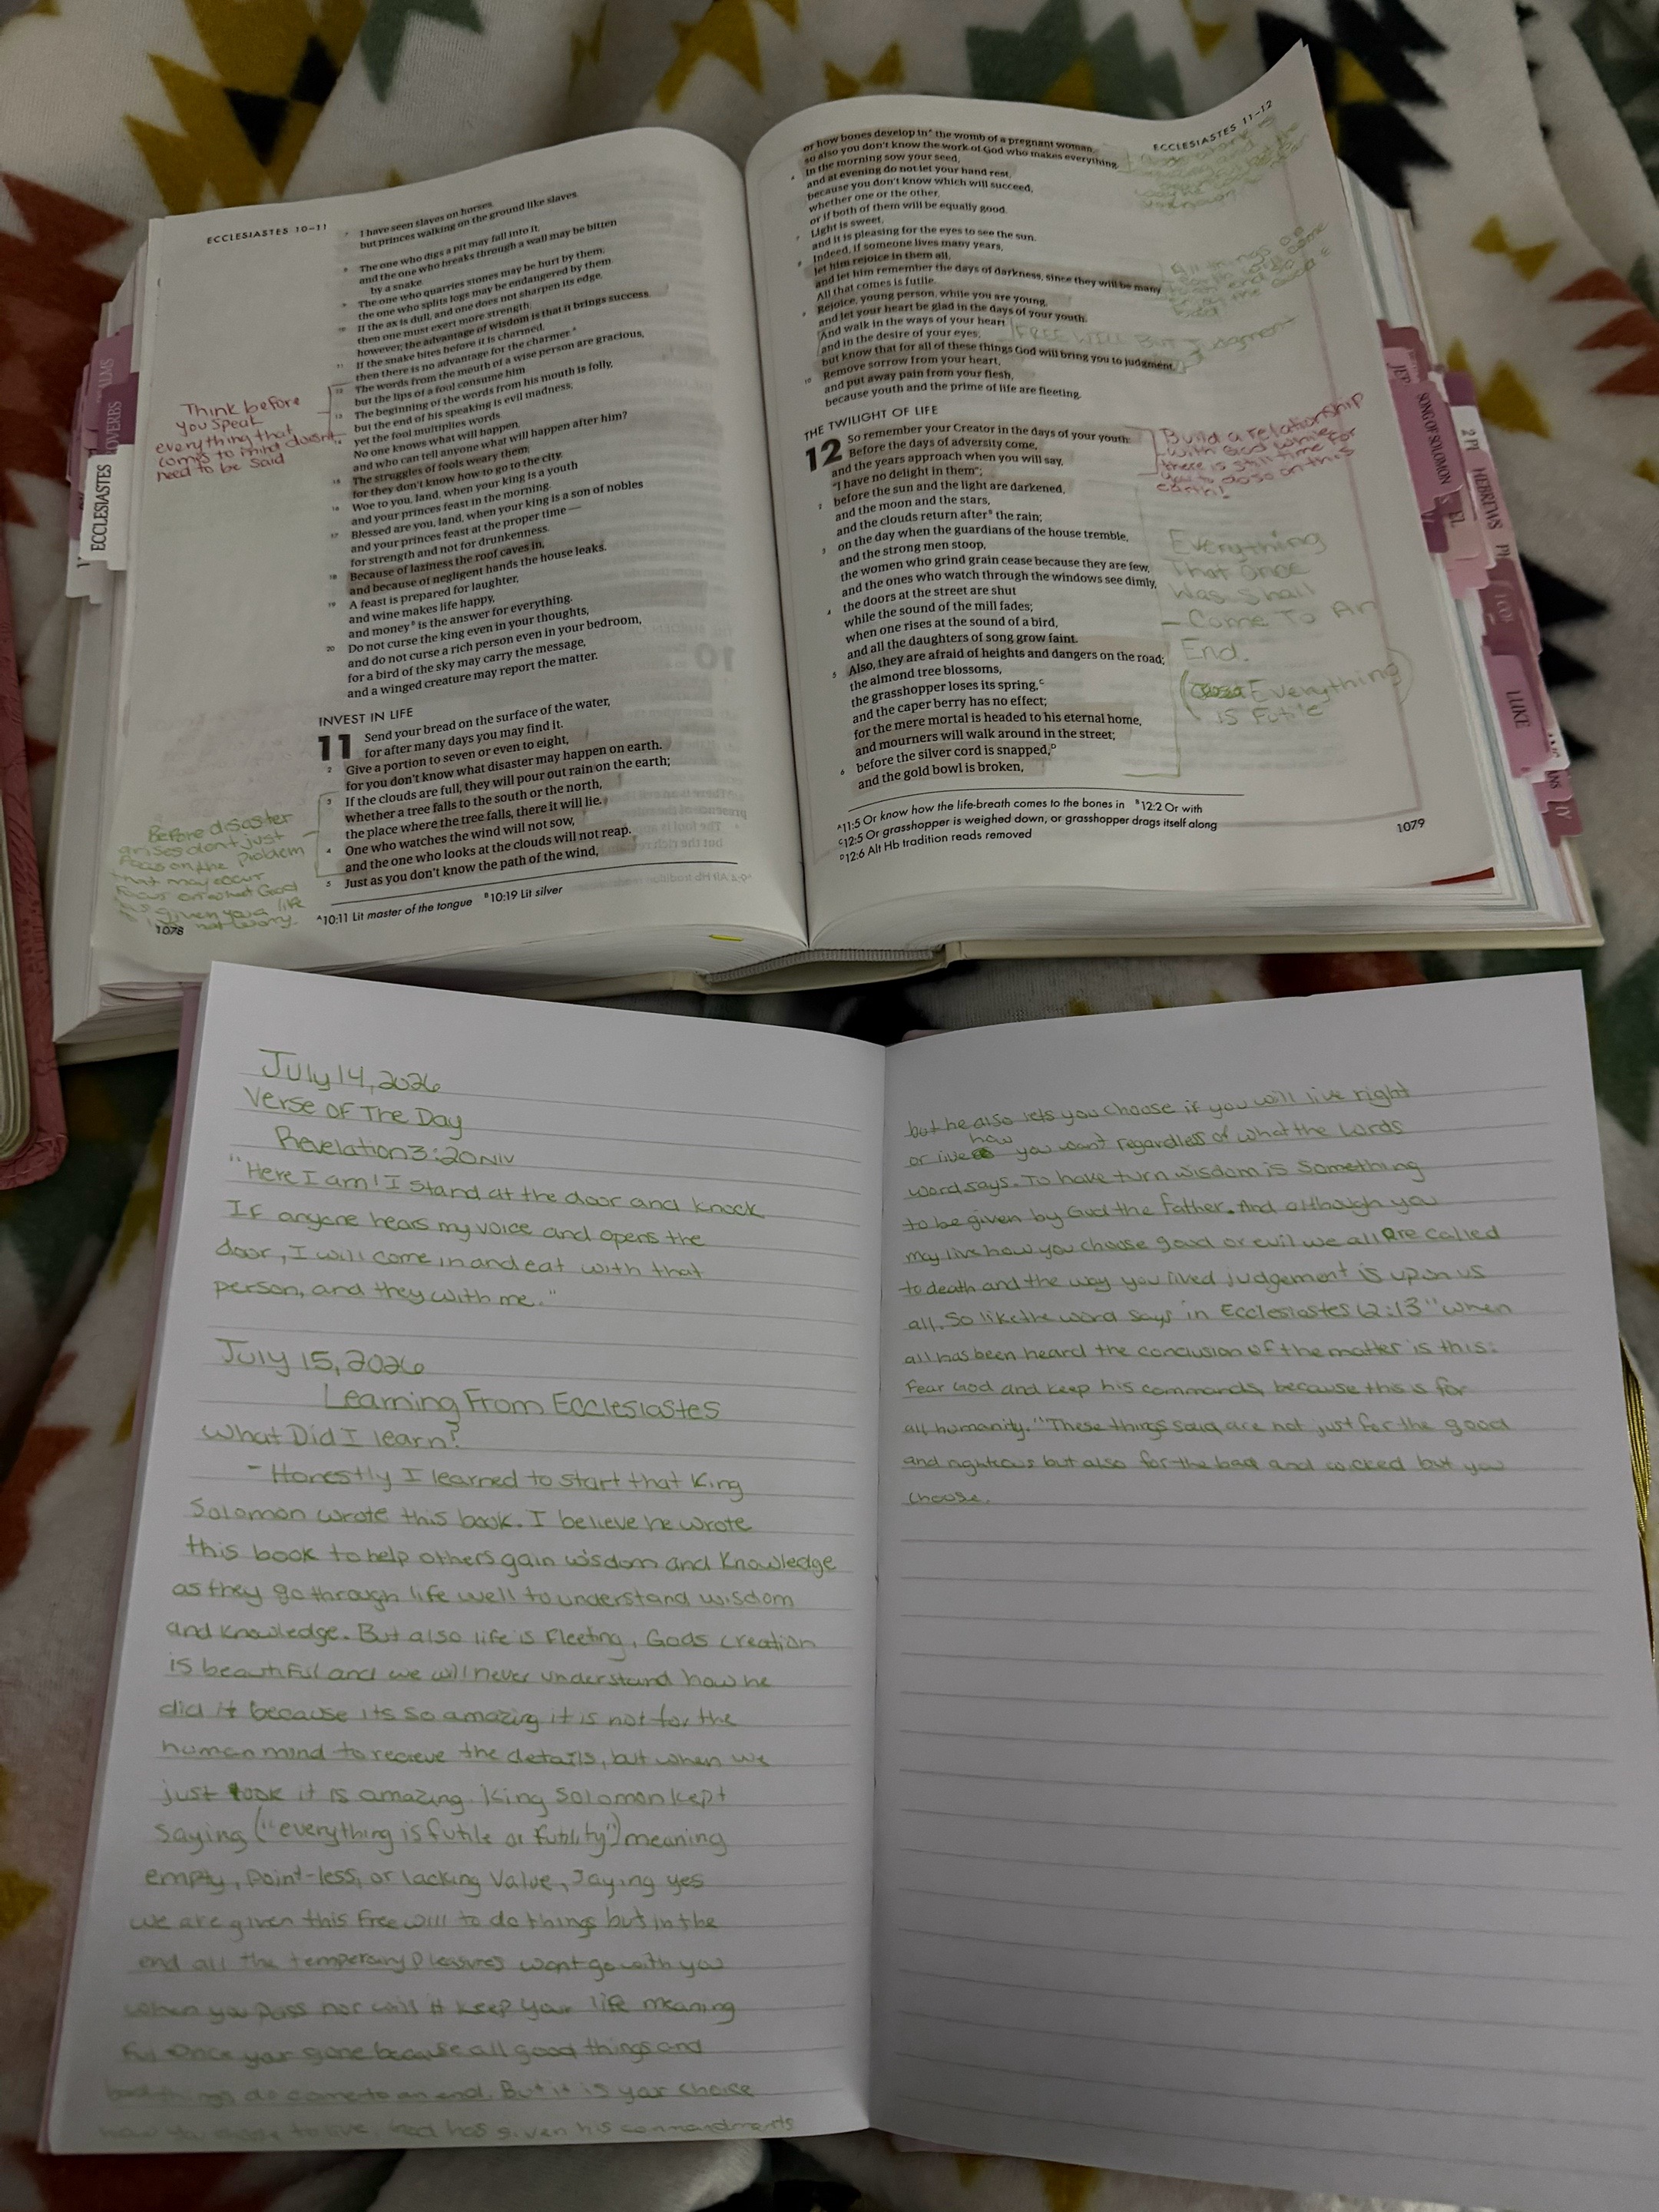 ECCLESIASTES 10–11
7 I have seen slaves on horses,
but princes walking on the ground like slaves.
8 The one who digs a pit may fall into it,
and the one who breaks through a wall may be bitten
by a snake.
9 The one who quarries stones may be hurt by them;
the one who splits logs may be endangered by them.
10 If the ax is dull, and one does not sharpen its edge,
then one must exert more strength;
however, the advantage of wisdom is that it brings success.
11 If the snake bites before it is charmed,
then there is no advantage for the charmer.ᴬ
12 The words from the mouth of a wise person are gracious,
but the lips of a fool consume him.
13 The beginning of the words from his mouth is folly,
but the end of his speaking is evil madness;
yet the fool multiplies words.
No one knows what will happen,
and who can tell anyone what will happen after him?
The struggles of fools weary them,
for they don't know how to go to the city.
16 Woe to you, land, when your king is a youth
and your princes feast in the morning.
17 Blessed are you, land, when your king is a son of nobles
and your princes feast at the proper time —
for strength and not for drunkenness.
18 Because of laziness the roof caves in,
and because of negligent hands the house leaks.
19 A feast is prepared for laughter,
and wine makes life happy,
and moneyᴮ is the answer for everything.
20 Do not curse the king even in your thoughts,
and do not curse a rich person even in your bedroom,
for a bird of the sky may carry the message,
and a winged creature may report the matter.
INVEST IN LIFE
11 Send your bread on the surface of the water,
for after many days you may find it.
2 Give a portion to seven or even to eight,
for you don't know what disaster may happen on earth.
3 If the clouds are full, they will pour out rain on the earth;
whether a tree falls to the south or the north,
the place where the tree falls, there it will lie.
4 One who watches the wind will not sow,
and the one who looks at the clouds will not reap.
5 Just as you don't know the path of the wind,
ᴬ10:11 Lit master of the tongue ᴮ10:19 Lit silver
1078
Think before
you speak
everything that
comes to mind doesn't
need to be said
Before disaster
arises don't just
focus on the problem
that may occur
focus on what God
has given you a life
not worry.
PROVERBS
ECCLESIASTES
ECCLESIASTES 11–12
or how bones develop inᴬ the womb of a pregnant woman,
so also you don't know the work of God who makes everything.
6 In the morning sow your seed,
and at evening do not let your hand rest,
because you don't know which will succeed,
whether one or the other,
or if both of them will be equally good.
7 Light is sweet,
and it is pleasing for the eyes to see the sun.
8 Indeed, if someone lives many years,
let him rejoice in them all,
and let him remember the days of darkness, since they will be many.
All that comes is futile.
9 Rejoice, young person, while you are young,
and let your heart be glad in the days of your youth.
And walk in the ways of your heart
and in the desire of your eyes;
but know that for all of these things God will bring you to judgment.
10 Remove sorrow from your heart,
and put away pain from your flesh,
because youth and the prime of life are fleeting.
THE TWILIGHT OF LIFE
12 So remember your Creator in the days of your youth:
Before the days of adversity come,
and the years approach when you will say,
"I have no delight in them";
2 before the sun and the light are darkened,
and the moon and the stars,
and the clouds return afterᴮ the rain;
3 on the day when the guardians of the house tremble,
and the strong men stoop,
the women who grind grain cease because they are few,
and the ones who watch through the windows see dimly,
4 the doors at the street are shut
while the sound of the mill fades;
when one rises at the sound of a bird,
and all the daughters of song grow faint.
5 Also, they are afraid of heights and dangers on the road;
the almond tree blossoms,
the grasshopper loses its spring,ᶜ
and the caper berry has no effect;
for the mere mortal is headed to his eternal home,
and mourners will walk around in the street;
6 before the silver cord is snapped,ᴰ
and the gold bowl is broken,
ᴬ11:5 Or know how the life-breath comes to the bones in ᴮ12:2 Or with
ᶜ12:5 Or grasshopper is weighed down, or grasshopper drags itself along
ᴰ12:6 Alt Hb tradition reads removed
1079
unknown
All things
come
good &
bad
FREE WILL BUT Judgment
Build a relationship
with God while
there is still time for
you to do so on this
earth!
Everything
That Once
Was Shall
- Come To An
End.
Everything
is Futile
SONG OF SOLOMON
HEBREWS
LUKE
2 PE
July 14, 2026
Verse Of The Day
Revelation 3:20 NIV
"Here I am! I stand at the door and knock
If anyone hears my voice and opens the
door, I will come in and eat with that
person, and they with me."
July 15, 2026
Learning From Ecclesiastes
What Did I learn?
- Honestly I learned to start that King
Solomon wrote this book. I believe he wrote
this book to help others gain wisdom and Knowledge
as they go through life well to understand wisdom
and knowledge. But also life is fleeting, Gods creation
is beautiful and we will never understand how he
did it because its so amazing it is not for the
human mind to recieve the details, but when we
just look it is amazing. King Solomon kept
saying ("everything is futile or futility") meaning
empty, point-less, or lacking value, Saying yes
we are given this free will to do things but in the
end all the temperary pleasures wont go with you
when you pass nor will it keep your life meaning
ful once your gone because all good things and
bad things do come to an end. But it is your choise
how you choose to live, God has given his commandments
but he also lets you choose if you will live right
or live how you want regardless of what the Lords
word says. To have turn wisdom is something
to be given by God the Father. And although you
may live how you choose good or evil we all are called
to death and the way you lived judgement is upon us
all. So like the word says in Ecclesiastes 12:13 "when
all has been heard the conclusion of the matter is this:
fear God and keep his commands, because this is for
all humanity." These things said are not just for the good
and righteous but also for the bad and wicked but you
choose.